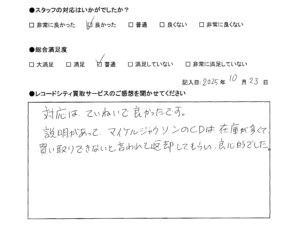 ●スタッフの対応はいかがでしたか？
□非常に良かった ☑良かった □普通 □良くない □非常に良くない
●総合満足度
□大満足 □満足 ☑普通 □満足していない □非常に満足していない
記入日：2025年 10月 23日
●レコードシティ買取サービスのご感想を聞かせてください
対応は ていねいで良かったです。
説明があって、マイケルジャクソンのCDは在庫が多くて
買い取りできないと言われて返却してもらい、良心的でした。